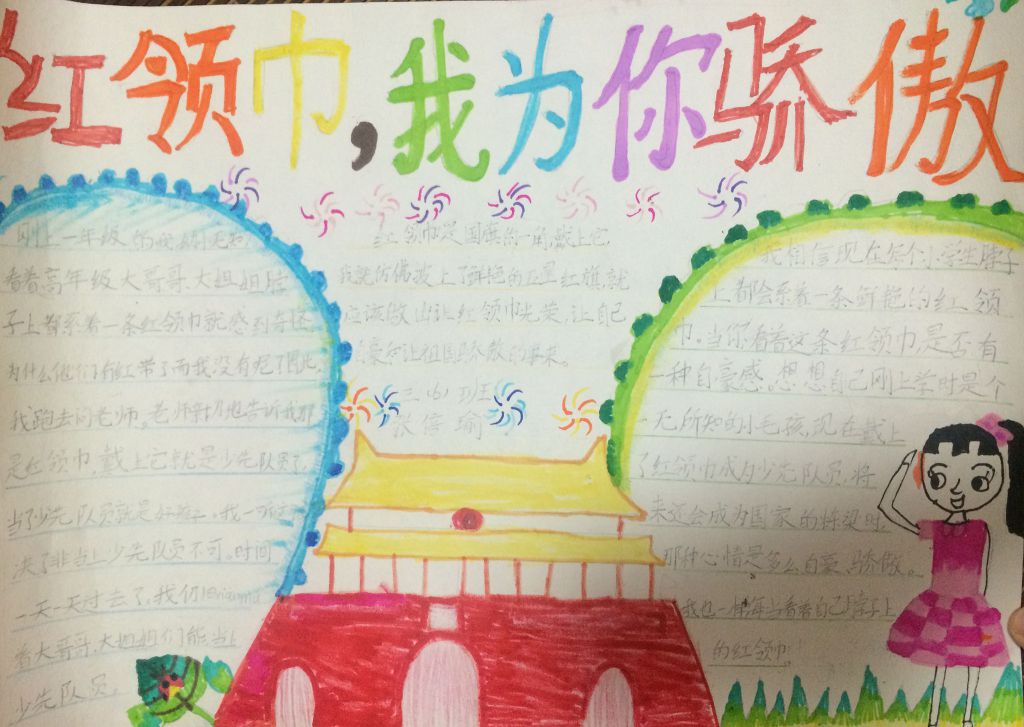 红领巾,我为你骄傲
刚上一年级的我
看着高年级大哥哥、大姐姐脖
子上都系着一条红领巾就感到奇怪
为什么他们有红带了而我没有呢？因此
我跑去问老师。老师告诉我那
是红领巾,戴上它就是少先队员了,
当了少先队员就是好孩子,我一听
决了非当上少先队员不可,时间
一天一天过去了,我们
看大哥哥、大姐姐们能当上
少先队员。
红领巾是国旗的一角,戴上它,
我就仿佛披上了鲜艳的五星红旗,就
应该做出让红领巾光荣,让自己
自豪和让祖国骄傲的事来。
三、(6)班
张倍瑜
我相信现在每个小学生脖子
上都会系着一条鲜艳的红领
巾。当你看着这条红领巾,是否有
一种自豪感。想想自己刚上学时是个
一无所知的小毛孩,现在戴上
了红领巾成为少先队员,将
来还会成为国家的栋梁时,
那种心情是多么自豪、骄傲。
我也一样每当看着自己脖子上
的红领巾